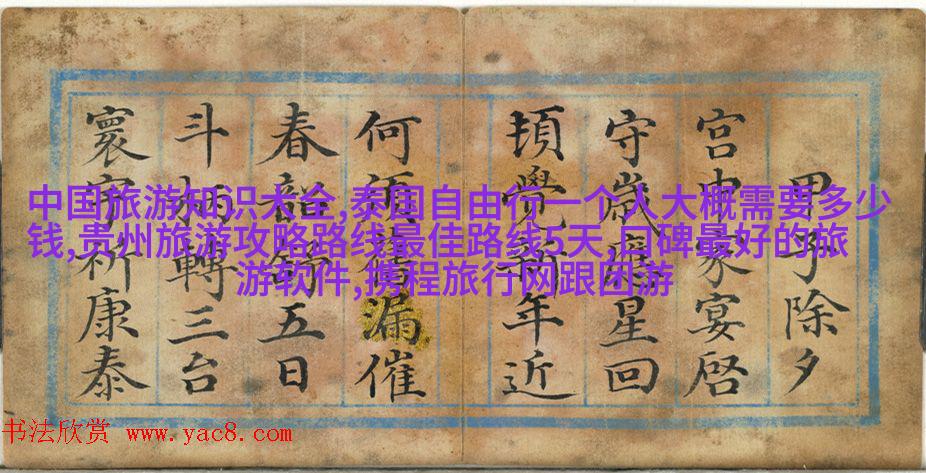 中国旅游知识大全,泰国自由行一个人大概需要多少
钱,贵州旅游攻略路线最佳路线5天,口碑最好的旅
游软件,携程旅行网跟团游
甲子除夕
宮中家宴啓
守歳星回
頃覺新年近
何須漏催
春韶五日
斗柄轉三台
寰宇祈康泰
书法欣赏 www.yac8.com